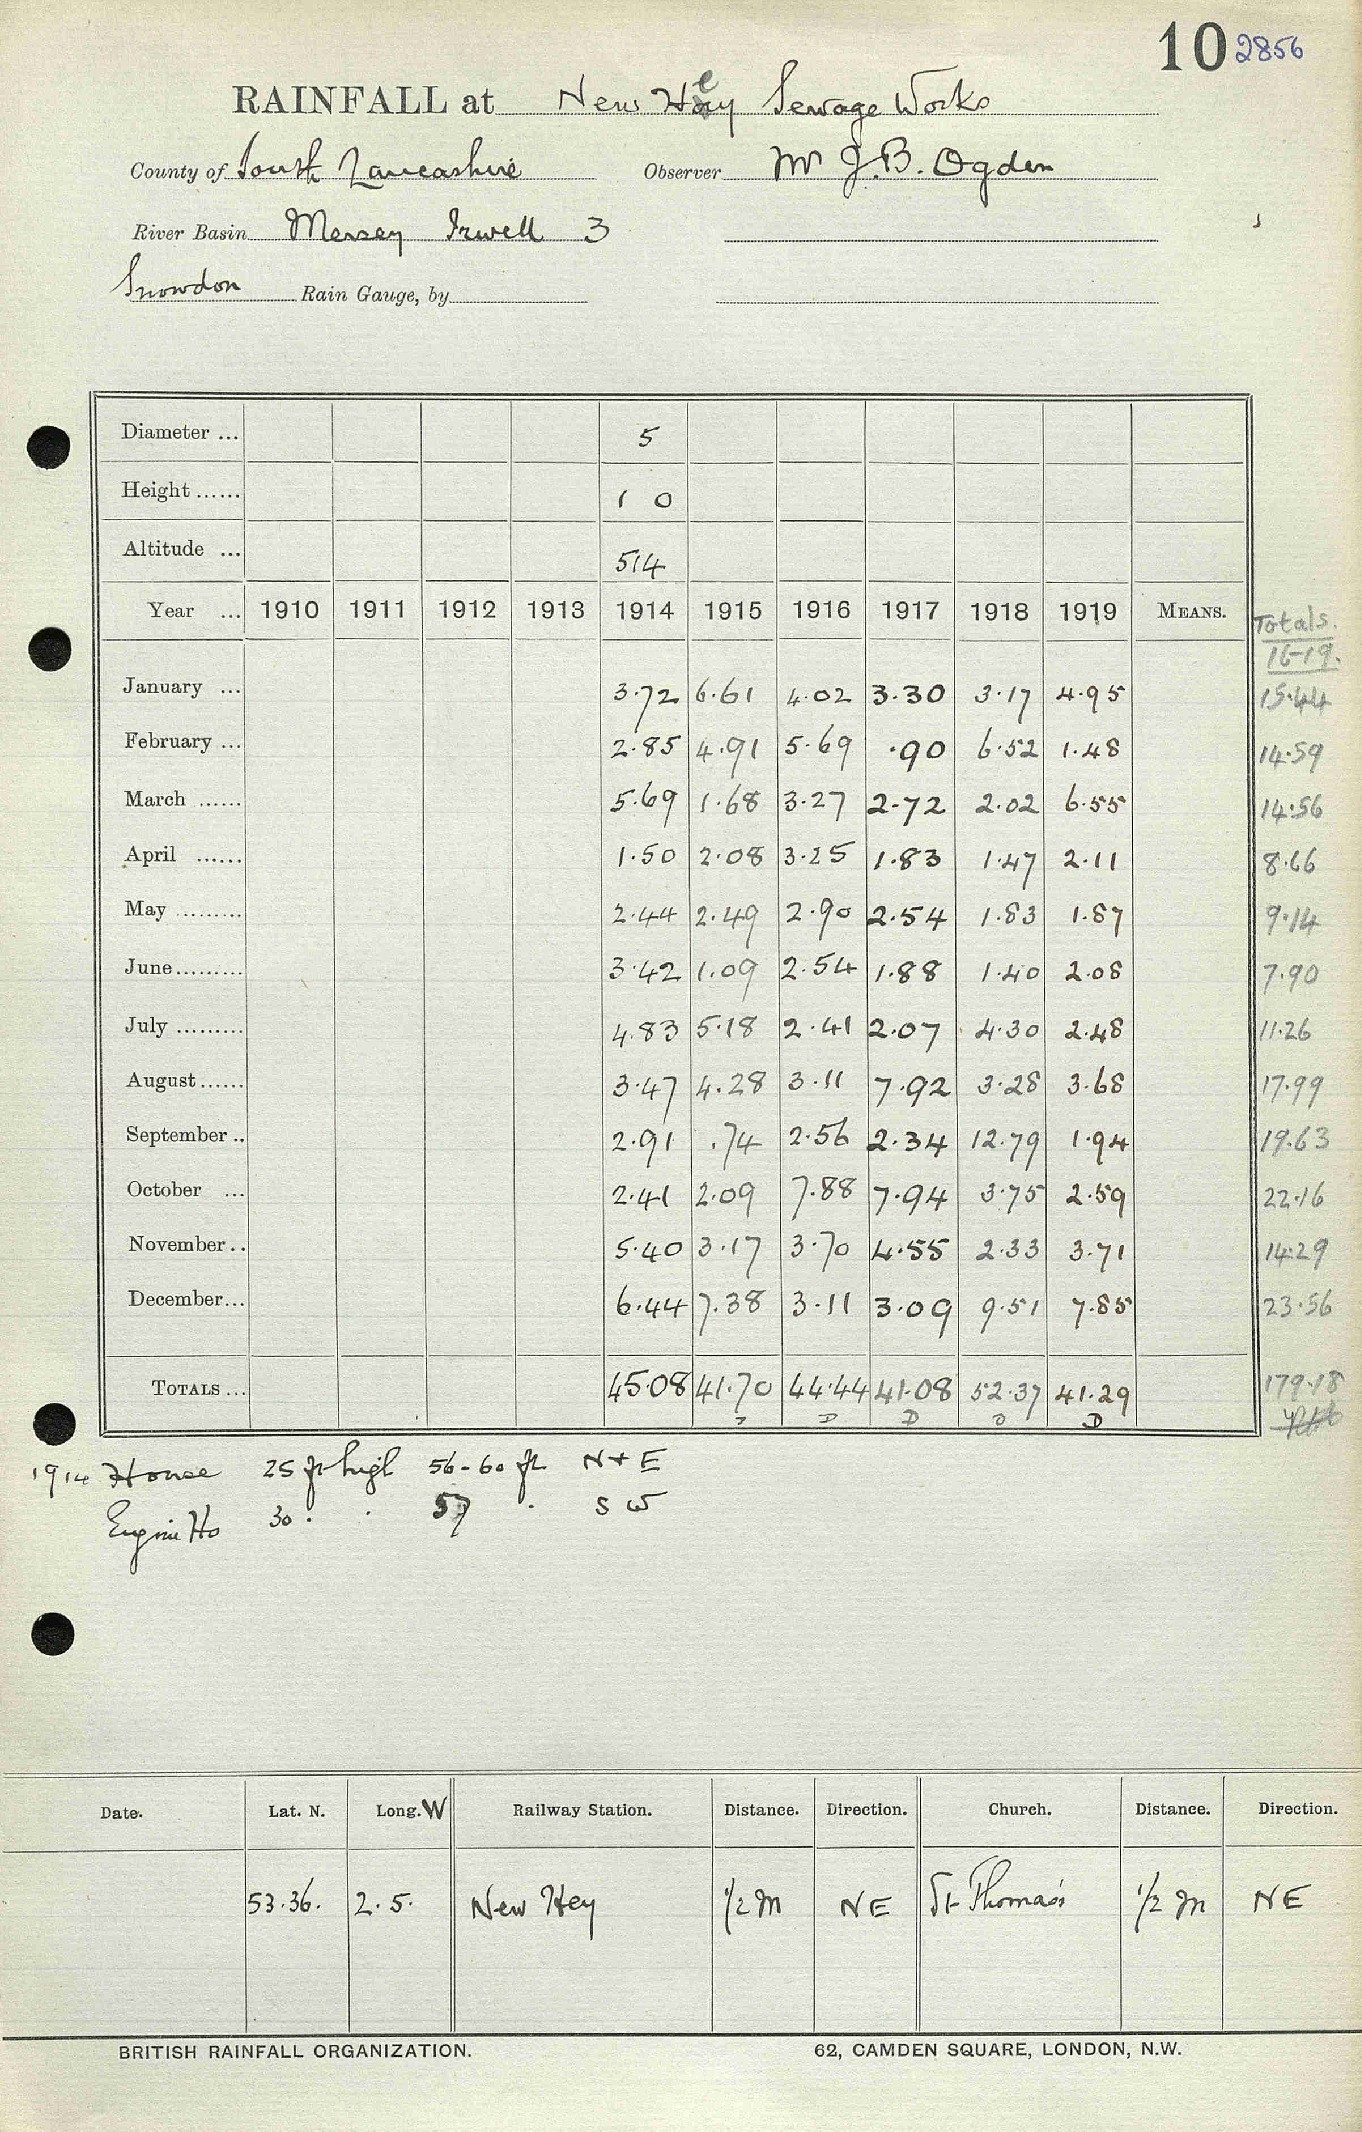 10 2856
RAINFALL at New Hey Sewage Works
County of South Lancashire Observer Mr J.B. Ogden
River Basin Mersey Irwell 3
Snowdon Rain Gauge, by
Diameter ... 5
Height ...... 1 0
Altitude ... 514
Year ... 1910 1911 1912 1913 1914 1915 1916 1917 1918 1919 MEANS. Totals.
16-19.
January ... 3.72 6.61 4.02 3.30 3.17 4.95 15.44
February ... 2.85 4.91 5.69 .90 6.52 1.48 14.59
March ...... 5.69 1.68 3.27 2.72 2.02 6.55 14.56
April ...... 1.50 2.08 3.25 1.83 1.47 2.11 8.66
May ......... 2.44 2.49 2.90 2.54 1.83 1.87 9.14
June ......... 3.42 1.09 2.54 1.88 1.40 2.08 7.90
July ......... 4.83 5.18 2.41 2.07 4.30 2.48 11.26
August ...... 3.47 4.28 3.11 7.92 3.28 3.68 17.99
September .. 2.91 .74 2.56 2.34 12.79 1.94 19.63
October ... 2.41 2.09 7.88 7.94 3.75 2.59 22.16
November .. 5.40 3.17 3.70 4.55 2.33 3.71 14.29
December ... 6.44 7.38 3.11 3.09 9.51 7.85 23.56
TOTALS ... 45.08 41.70 44.44 41.08 52.37 41.29 179.18
D D D D
1914 House 25 ft high 56-60 ft N + E
Engine Ho 30 . . 57 . S W
Date. Lat. N. Long. W Railway Station. Distance. Direction. Church. Distance. Direction.
53.36. 2. 5. New Hey 1/2 m NE St Thomas's 1/2 m NE
BRITISH RAINFALL ORGANIZATION. 62, CAMDEN SQUARE, LONDON, N.W.